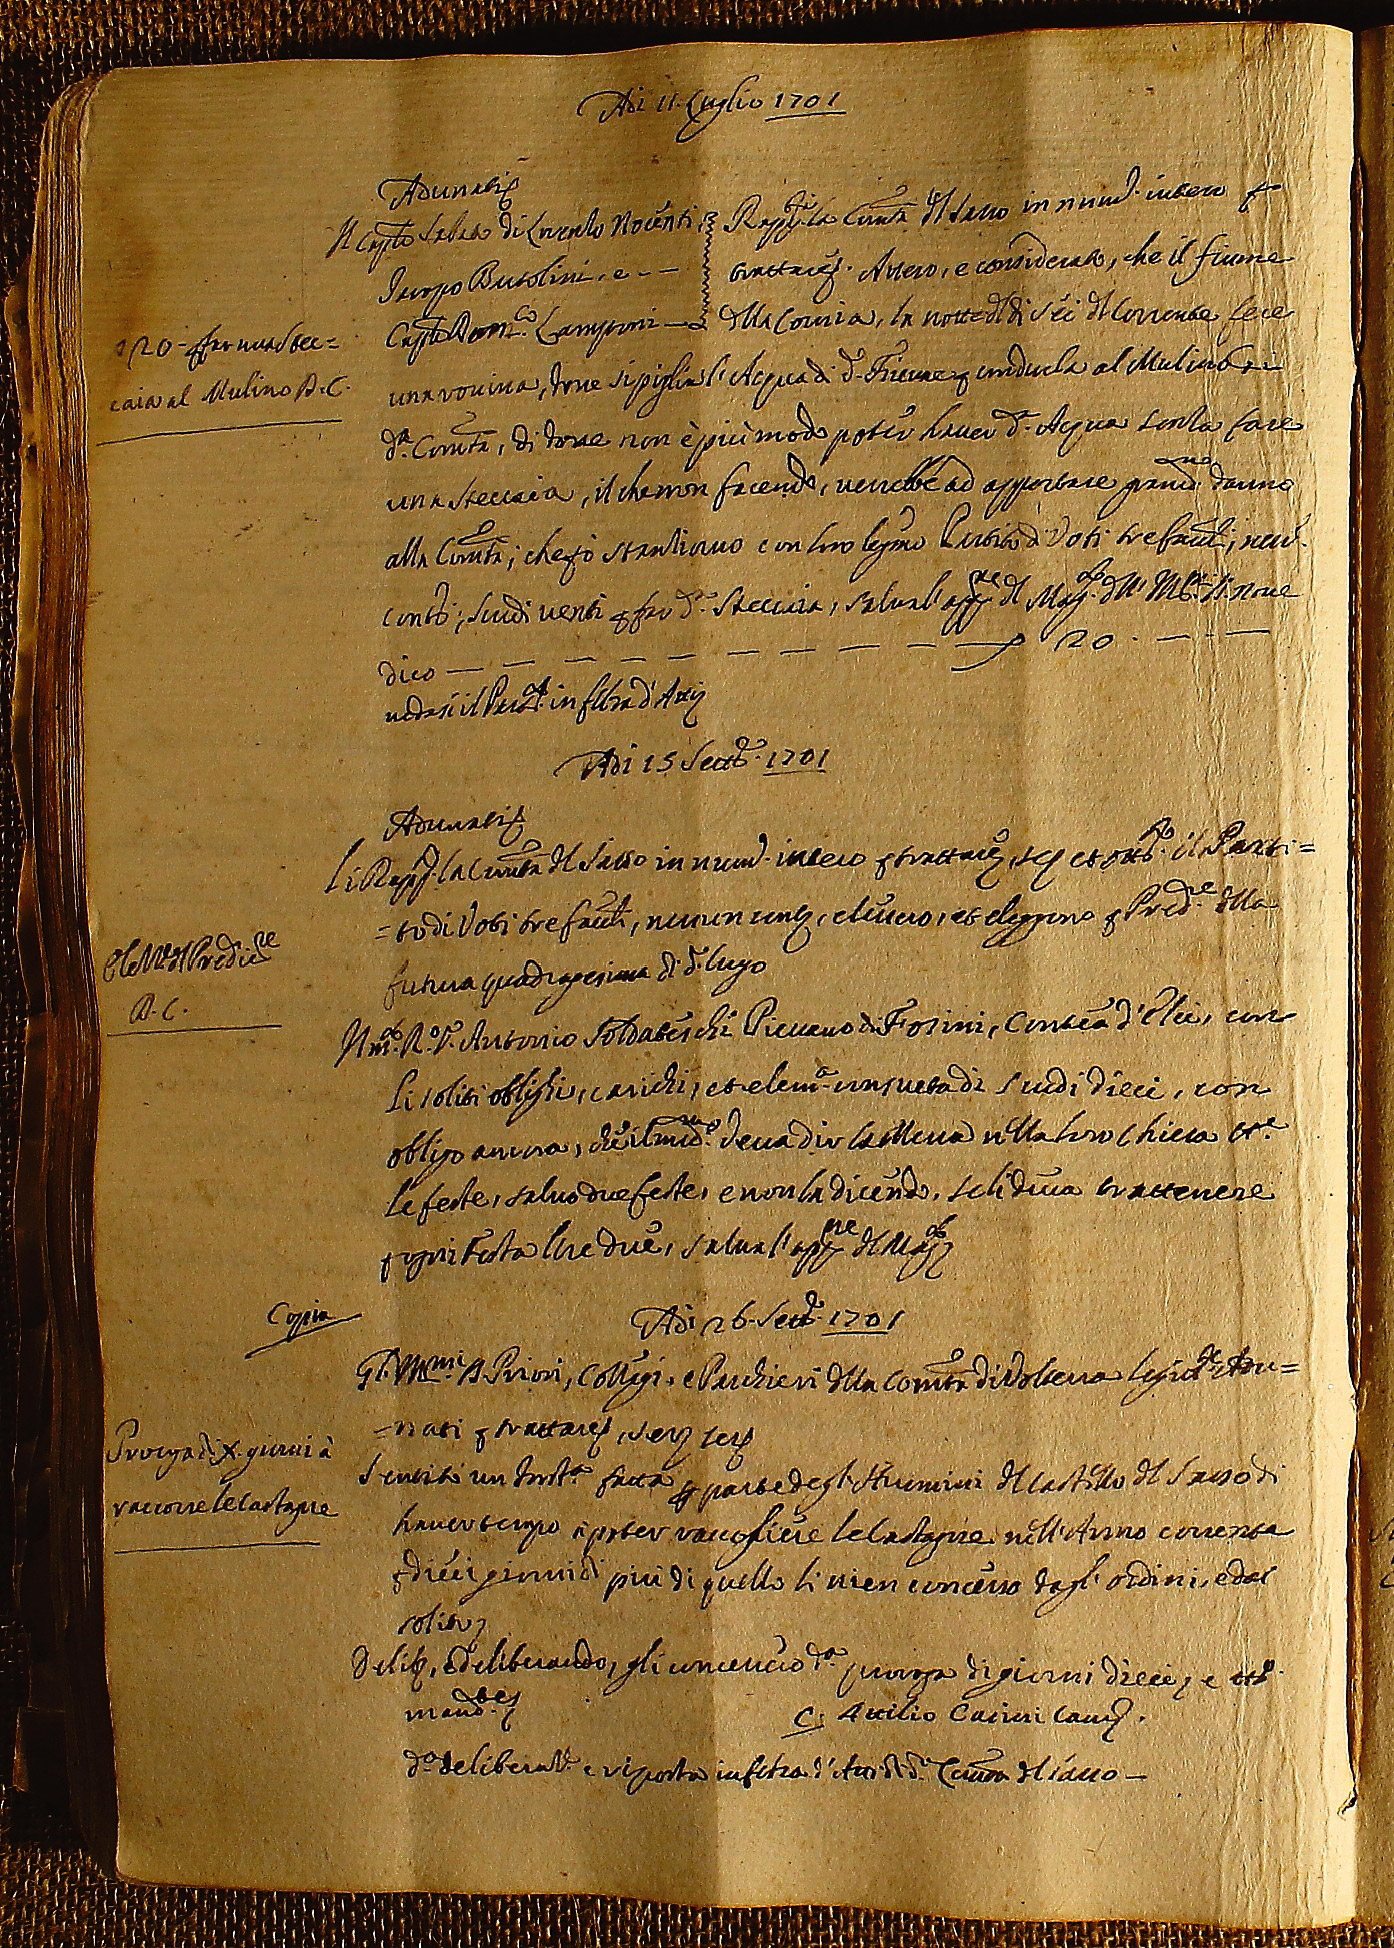 Adi 11 Luglio 1701
Adunatisi
Il Capno Sabato di Lorenzo Nocenti
Iacopo Busolini, e - -
Capno Domco Lamponi
Rapp.ti la Comtà del Sasso in num.o intero p
trattare. Atteso, e considerato, che il fiume
della Cornia, la notte del dì sei del Corrente fece
20 - p far una stec=
caia al Mulino D.C.
una rovina, dove si piglia l'Acqua di d.o Fiume p condurla al Mulino di
d.a Comtà, di dove non è più modo poter haver d.a Acqua senza fare
una steccaia, il che non facendo, verrebbe ad apportare grand.mo danno
alla Comtà; che p ciò stantiorno con loro legmo Partito di Voti tre favli, neuo
contrò; scudi venti p far d.a Steccaia, salva l'appne del Mag. dell' Mtri SS. nove
dico - - - - - - - - - 20 - - -
vedasi il in filza d'Atti
Adi 15 Settb. 1701
Adunatisi
Li Rapp.ti la Comtà del Sasso in num.o intero p trattare, et ottto il Parti=
=to di Voti tre favli, nessun contr, elessero, et eleggono p Pred.re della
futura quadragesima di d. lugo
Elett.e del Predic.re
D.C.
Il M.o R.o P. Antonio Soldateschi Pievano di Fosini, Contea d'Elci, con
li soliti oblighi, carichi, et elem.a consueta di Scudi dieci, con
obligo ancora, che il med.mo deva dir la Messa nella loro Chiesa tt.e
le feste, salvo due feste, e non la dicendo, se li deva trattenere
p ogni Festa lire due, salva l'appne del Mag.
Copia
Adi 26 Settb. 1701
Gl' Ill.mi SS. Priori, Collegi, e Paschieri della Comtà di Volterra legit.e Adu=
=nati p trattare, serv. serv.
Proroga di X. giorni à
raccorre le Castagne
Sentito un Inst.a fatta p parte degl' Huomini del Castello del Sasso di
haver tempo à poter raccogliere le Castagne nell' Anno corrente
p dieci giorni di più di quello li vien concesso dagl' ordini, e dal
solito
Delib., e deliberando, gli concessero d.a proroga di giorni dieci, e
mand.
C. Attilio Cancre.
d.a deliberat.e è riposta in filza d'Atti di d.a Comtà del Sasso -